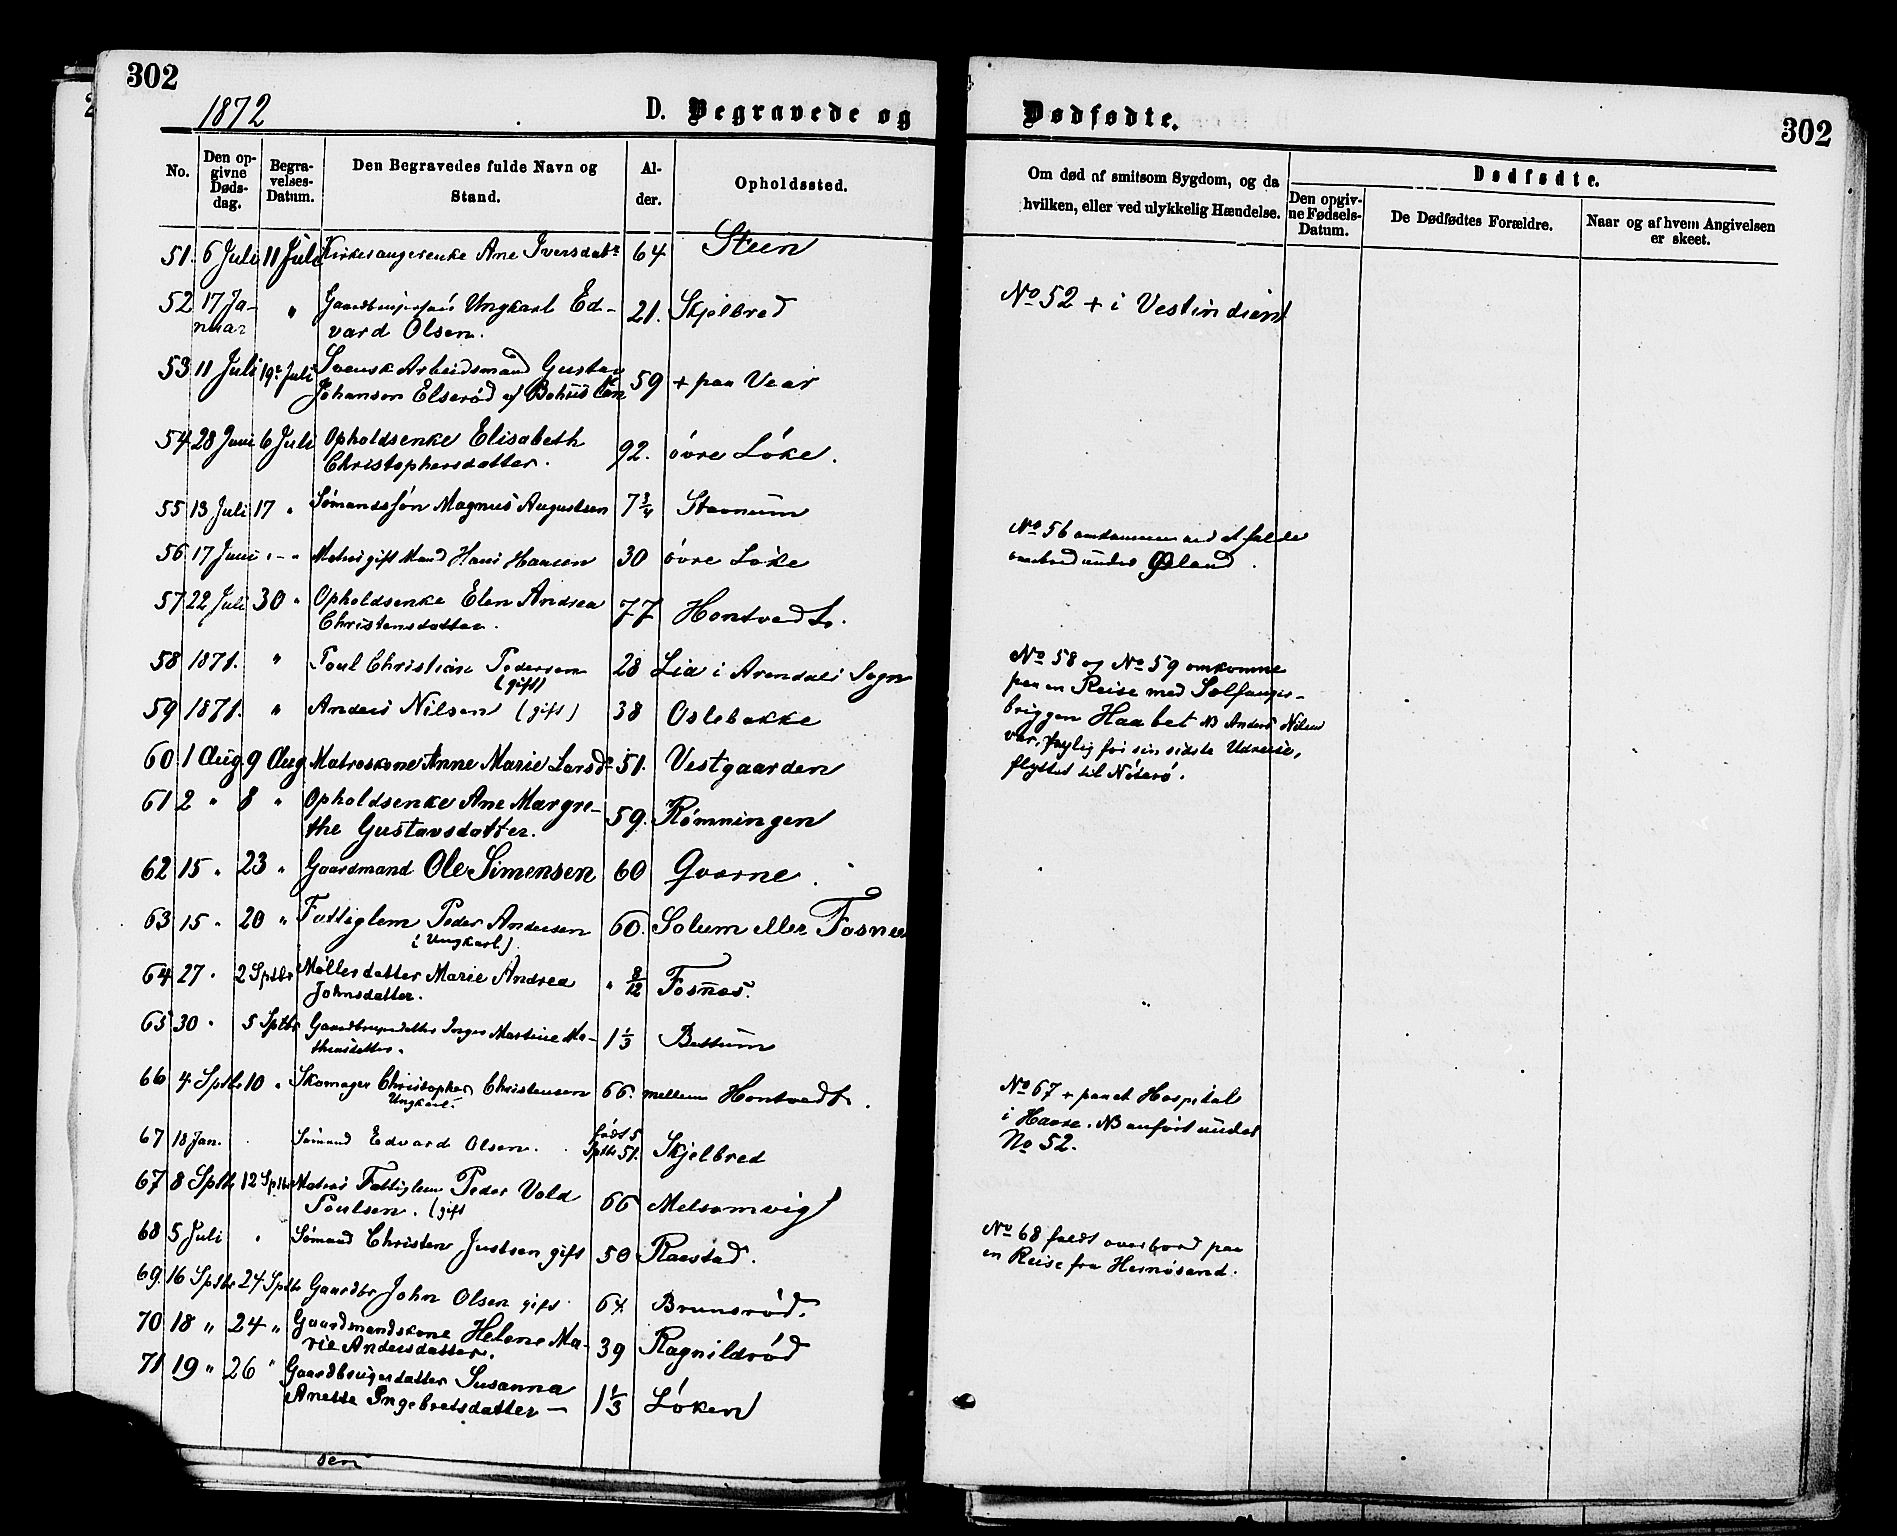 302
1872
D. Begravede og
Dødfødte.
302
No.
Den opgivne Dødsdag.
Begravelses-Datum.
Den Begravedes fulde Navn og Stand.
Alder.
Opholdssted.
Om død af smitsom Sygdom, og da hvilken, eller ved ulykkelig Hændelse.
Dødfødte.
Den opgivne Fødsels-Datum.
De Dødfødtes Forældre.
Naar og af hvem Angivelsen er skeet.
51. 6 Juli 11 Juli Kirkesangerenke Ane Iversdatr 64 Steen
52 17 Ja- " Ungkarl Ed- 21. Skjelbred
nuar vard Olsen.
No 52 + i Vestindien
53 11 Juli 19. Juli Svensk Arbeidsmand Gustav 59 + paa Vear
Johanson Elserød af Bohus Len
54 28 Juni 6 Juli Opholdsenke Elisabeth 92. övre Löke.
Christophersdatter.
55 13 Juli 17 " Sömandssön Magnus Augustsen 7 3/4 Stavnum
56 17 Juni " - " Matros gift Mand Hans Hansen 30 övre Löke
No 56 omkommen ved at falde
overbord under Øland.
57 22 Juli 30 " Opholdsenke Elen Andrea 77 Hontvedt.
Christensdatter.
58 1871. " Poul Christian Pedersen 28 Lia i Arendals Sogn
(gift)
59 1871. " Anders Nilsen (gift) 38 Oslebakke
No 58 og No 59 omkomne
paa en Reise med Sælfanger-
briggen Haabet NB Anders Nilsen
var, nylig før sin sidste Udreise,
flyttet til Nöterö.
60 1 Aug 9 Aug Matroskone Anne Marie Larsdr 51. Vestgaarden
61 2 " 8 " Opholdsenke Ane Margre- 59. Römningen
the Gustavsdatter.
62 15 " 23 " Gaardmand Ole Simensen 60 Gvarne.
63 15 " 20 " Fattiglem Peder Andersen 60. Solum eller Fosnes
(Ungkarl)
64 27 " 2 Sptbr Möllerdatter Marie Andrea " 8/12 Fosnæs.
Johnsdatter.
65 30 " 5 Sptbr Gaardbrugerdatter Inger Martine Ma- 1 1/3 Bettum
thiasdatter.
66 4 Sptbr 10 " Skomager Christopher Christensen 66. mellem Hontvedt.
Ungkarl.
67 18 Jan. Sömand Edvard Olsen. født 5 Sptbr 51. Skjelbred
No 67 + paa et Hospital
i Havre. NB anført under
No 52.
67 8 Sptbr 12 Sptbr Matros Fattiglem Peder Vold 66 Melsomvig
Poulsen. (gift
68 5 Juli " Sömand Christen Justsen gift 50 Raastad.
No 68 faldt overbord paa
en Reise fra Hernøsand.
69. 16 Sptbr 24 Sptbr Gaardbr John Olsen gift 64 Brunsrød.
70 18 " 24 " Gaardmandskone Helene Ma- 39 Ragnildrød
rie Andersdatter.
71 19 " 26 " Gaardbrugerdatter Susanna 1 1/3 Löken
Anette Ingebretsdatter —